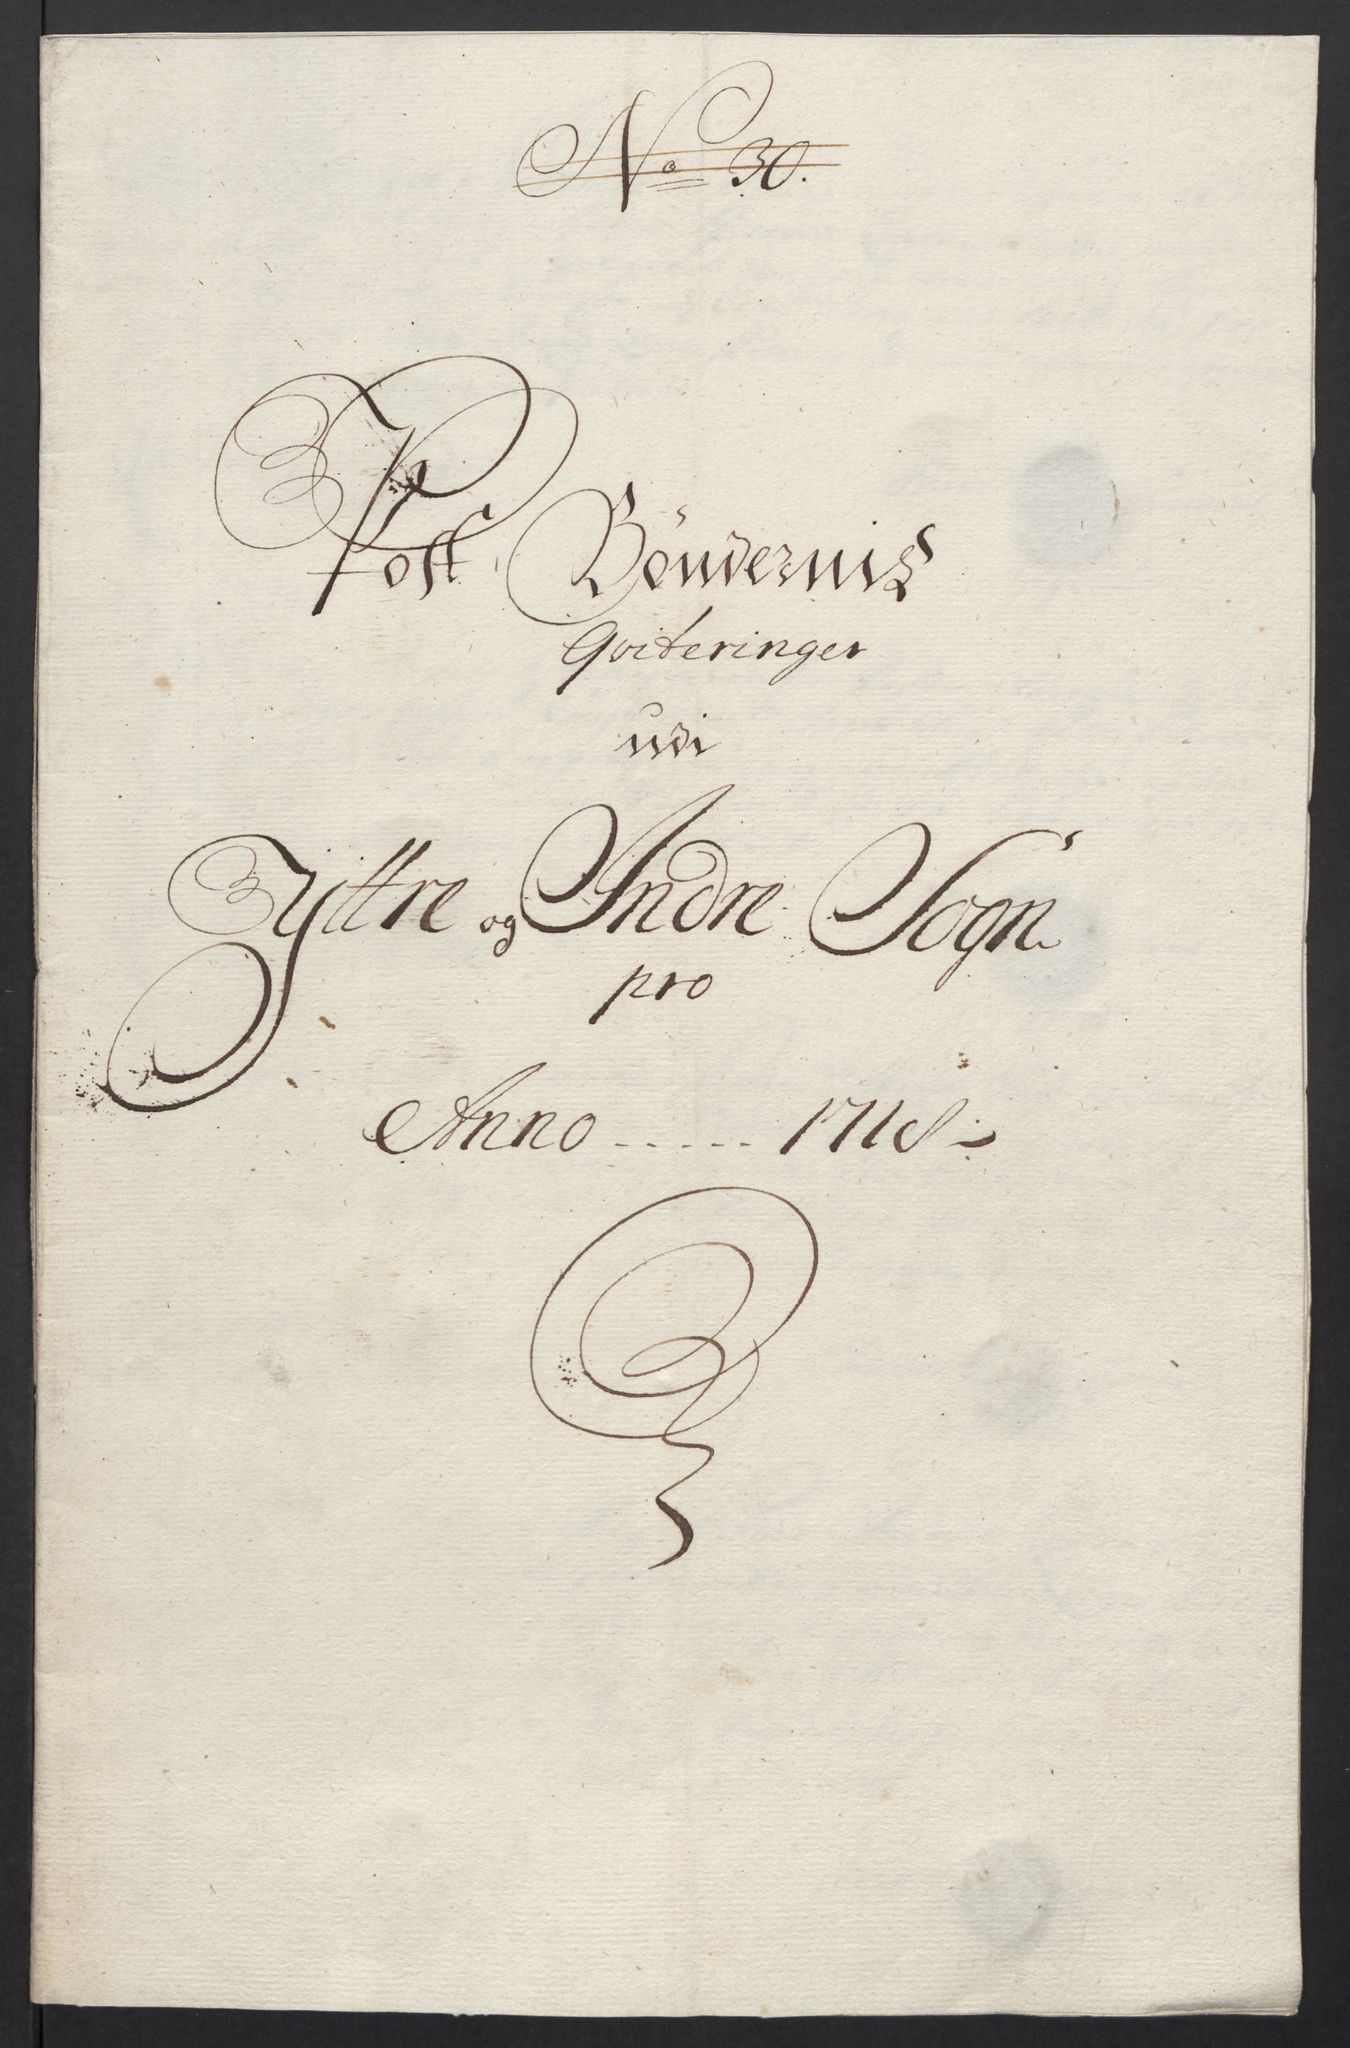 No 30.
Post Böndernis
Qviteringer
udi
Yttre og Indre Sogn
pro
Anno ..... 1718